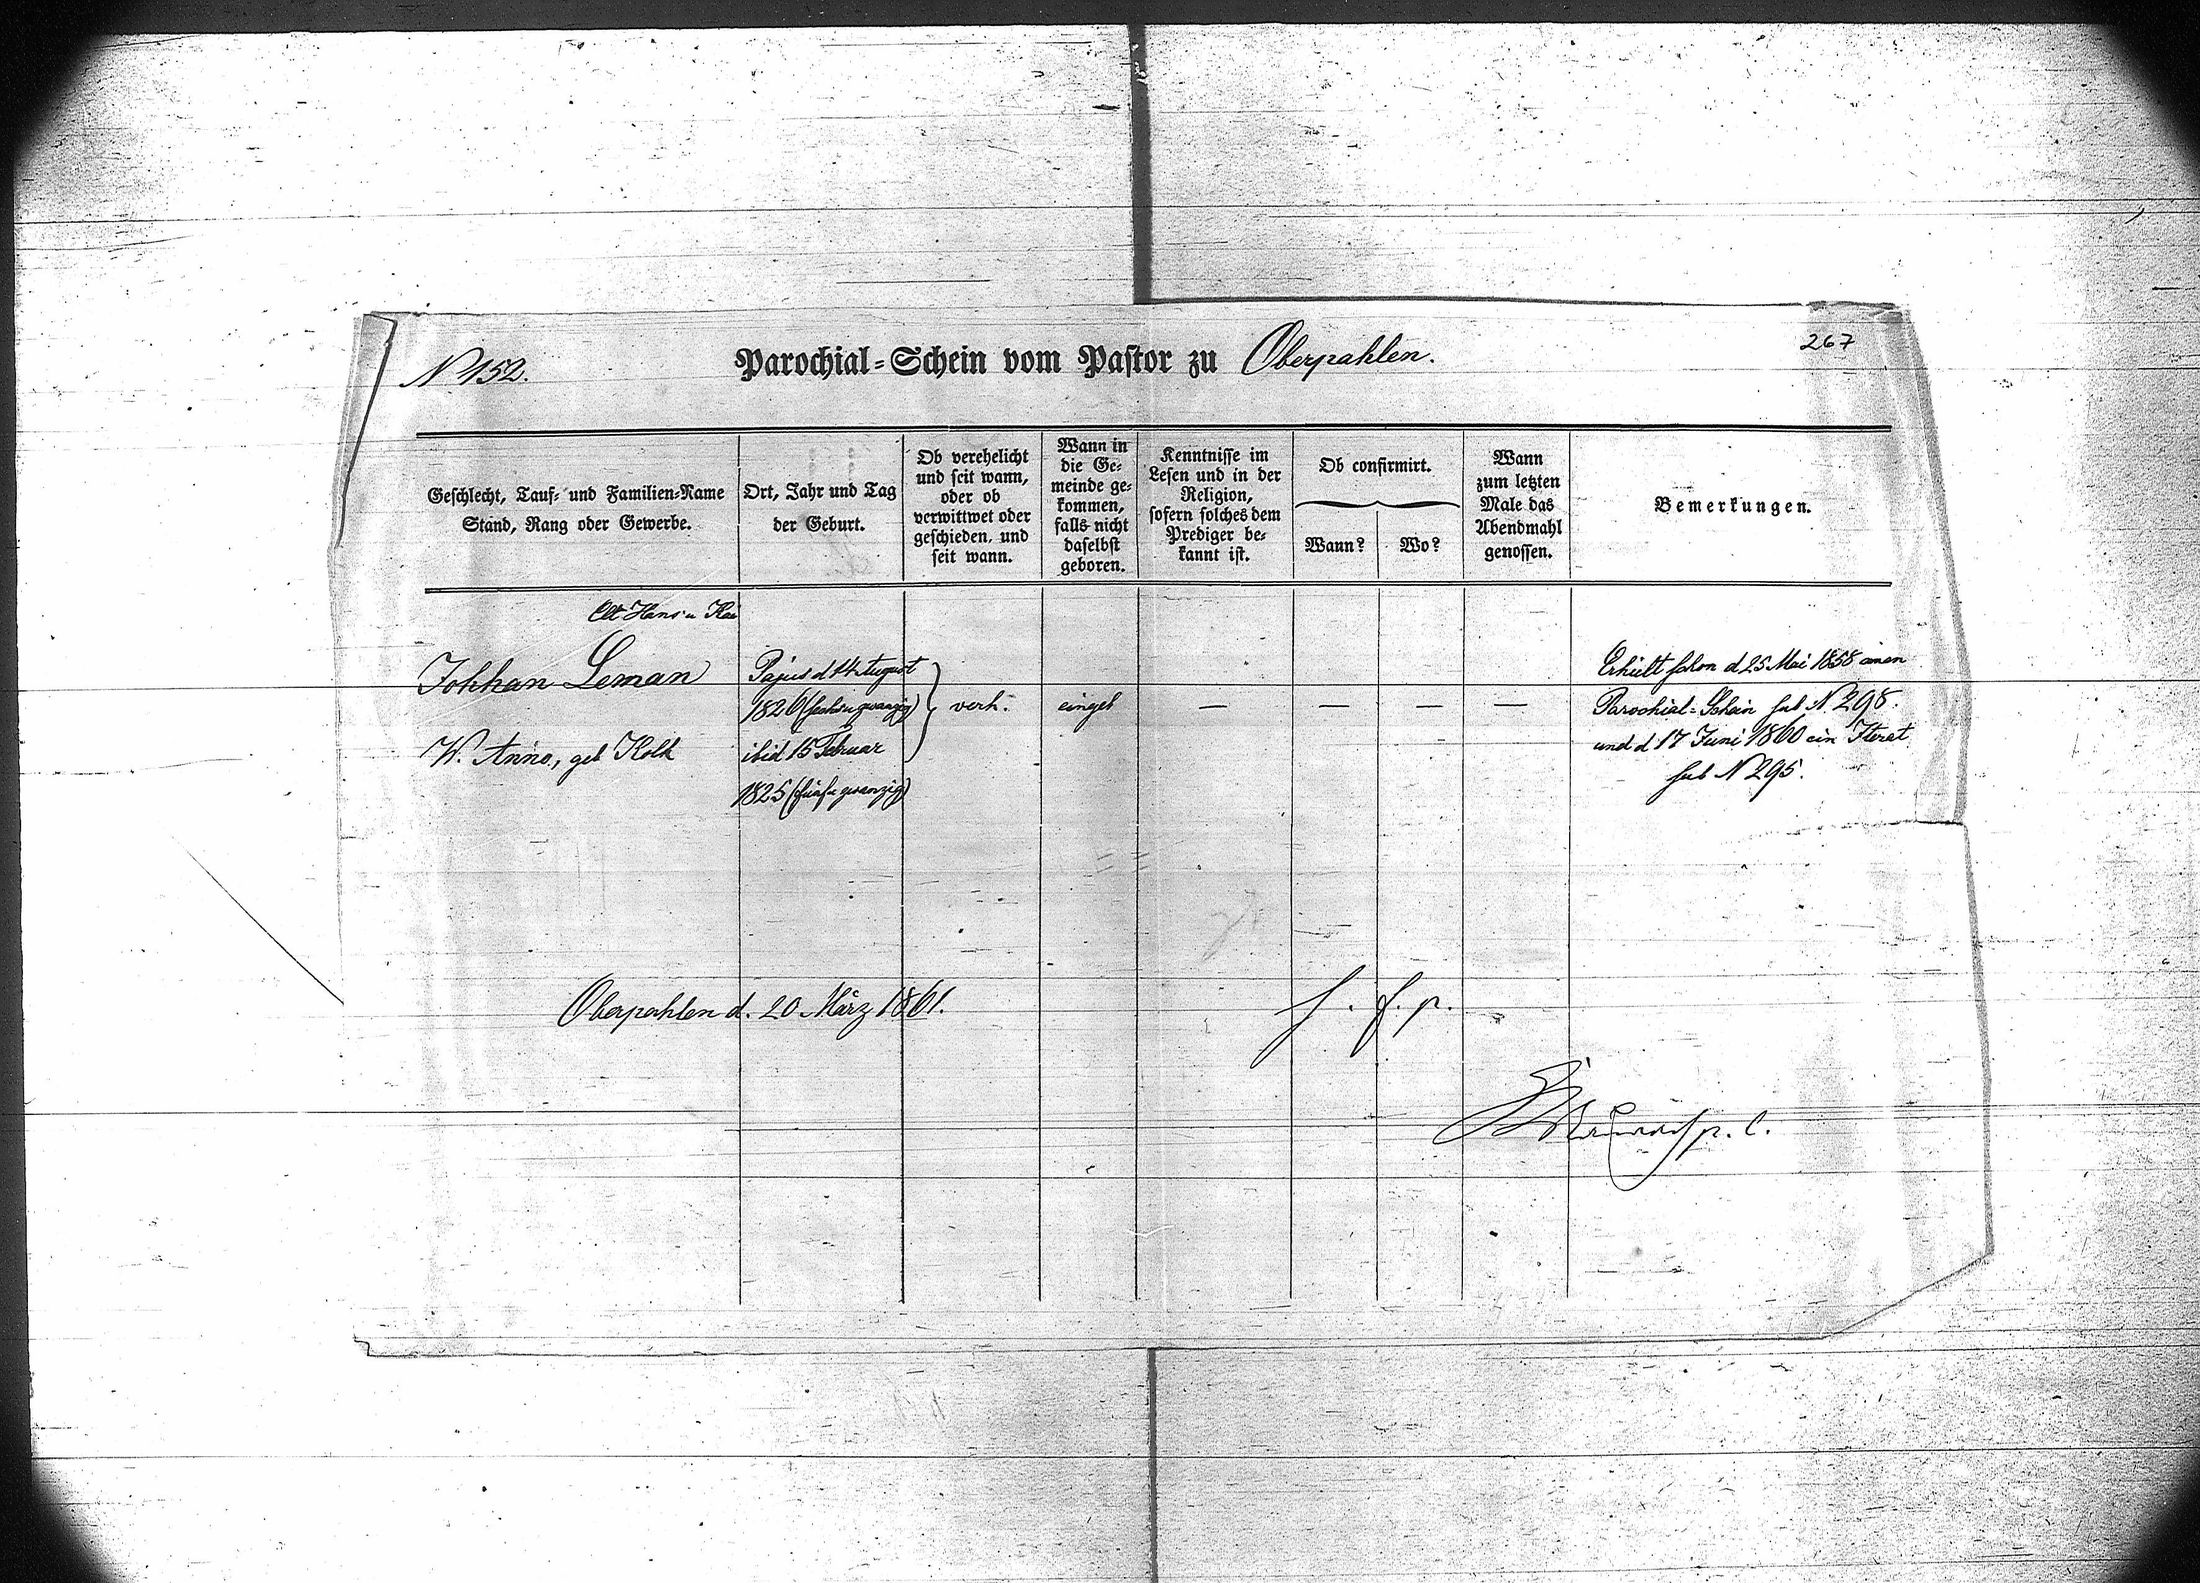 267
N 152.
Parochial=Schein vom Pastor zu Oberpahlen.
Geschlecht, Tauf= und Familien=Name
Stand, Rang oder Gewerbe.
Ort, Jahr und Tag
der Geburt.
Ob verehelicht
und seit wann,
oder ob
verwittwet oder
geschieden, und
seit wann.
Wann in
die Ge=
meinde ge=
kommen,
falls nicht
daselbst
geboren.
Kenntnisse im
Lesen und in der
Religion,
sofern solches dem
Prediger be=
kannt ist.
Ob confirmirt.
Wann?
Wo?
Wann
zum letzten
Male das
Abendmahl
genossen.
Bemerkungen.
Elt Hans u Kai
Johhan Leman
Pajus d 14 August
1826 (sechs u zwanzig)
verh.
eingeb
—
—
—
—
Erhielt schon d 25 Mai 1858 einen
Parochial=Schein sub N 298.
und d 17 Juni 1860 ein Iterat
sub N 295.
W. Anno, geb Kolk
ibid 15 Februar
1825 (fünf u zwanzig)
Oberpahlen d. 20 März 1861.
f. f. p.
p. l.